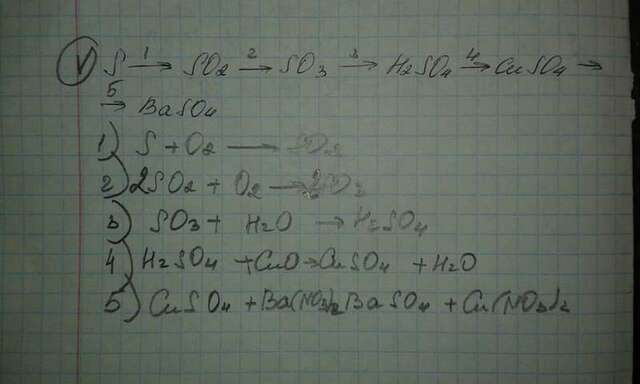 V S 1→ SO2 2→ SO3 3→ H2SO4 4→ CuSO4 →
5→ BaSO4
1) S + O2 → SO2
2) 2SO2 + O2 → 2SO3
3) SO3 + H2O → H2SO4
4) H2SO4 + CuO → CuSO4 + H2O
5) CuSO4 + Ba(NO3)2 BaSO4 + Cu(NO3)2